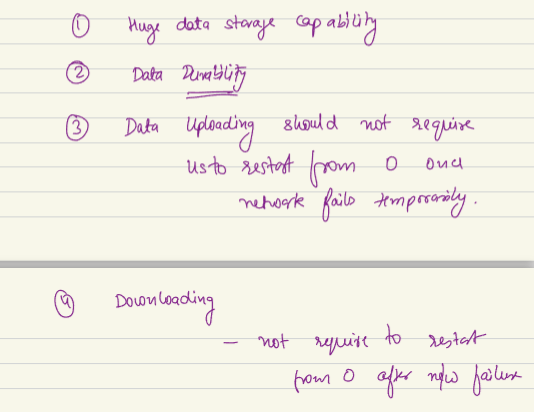 ① Huge data storage capability
② Data Durability
③ Data Uploading should not require
us to restart from 0 once
network fails temporarily.
④ Downloading
– not require to restart
from 0 after n/w failure